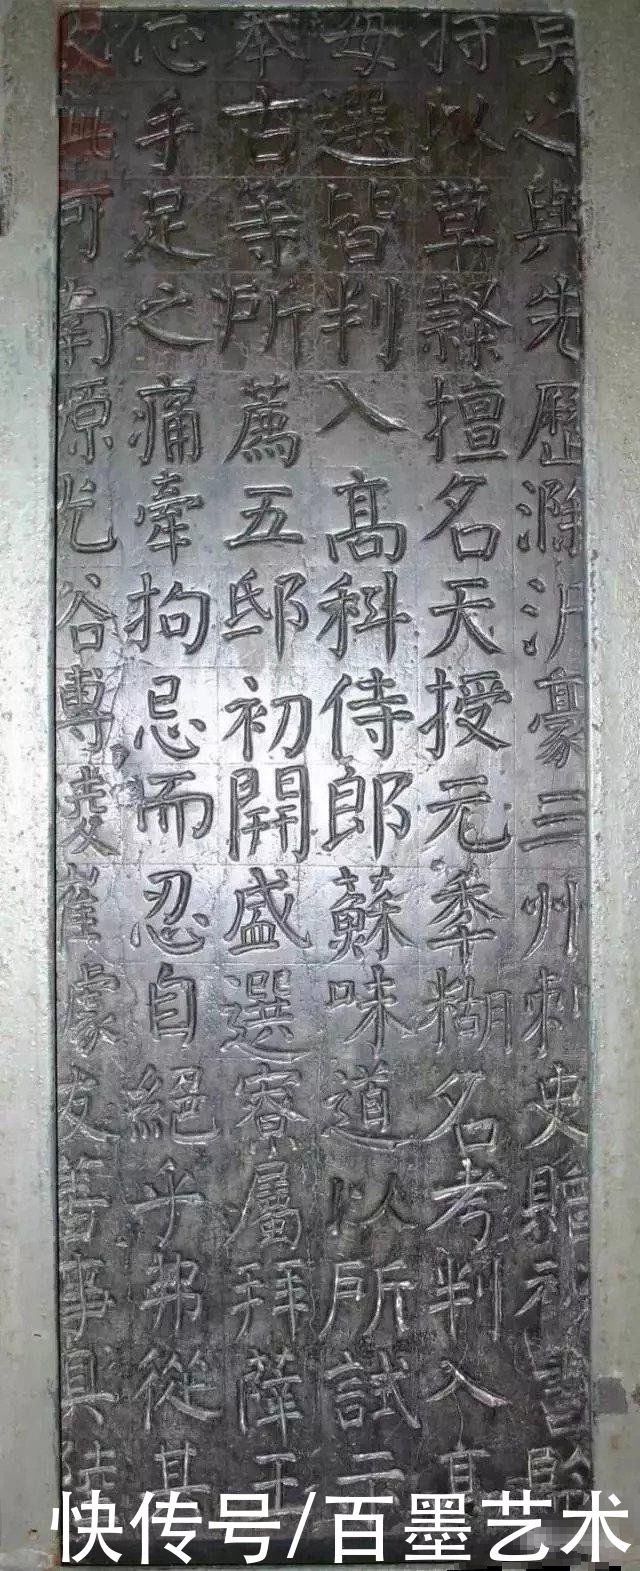 之與先歷滁沂豪三州刺史贈祕書監
特以草隸擅名天授元秊糊名考判入高
每選皆判入高科侍郎蘇味道以所試示
奉古等所薦五邸初開盛選寮屬拜薛王
忘手足之痛牽拘忌而忍自絕乎弗從其
河南源光裕博陵崔璩友善事具陸
快传号/百墨艺术